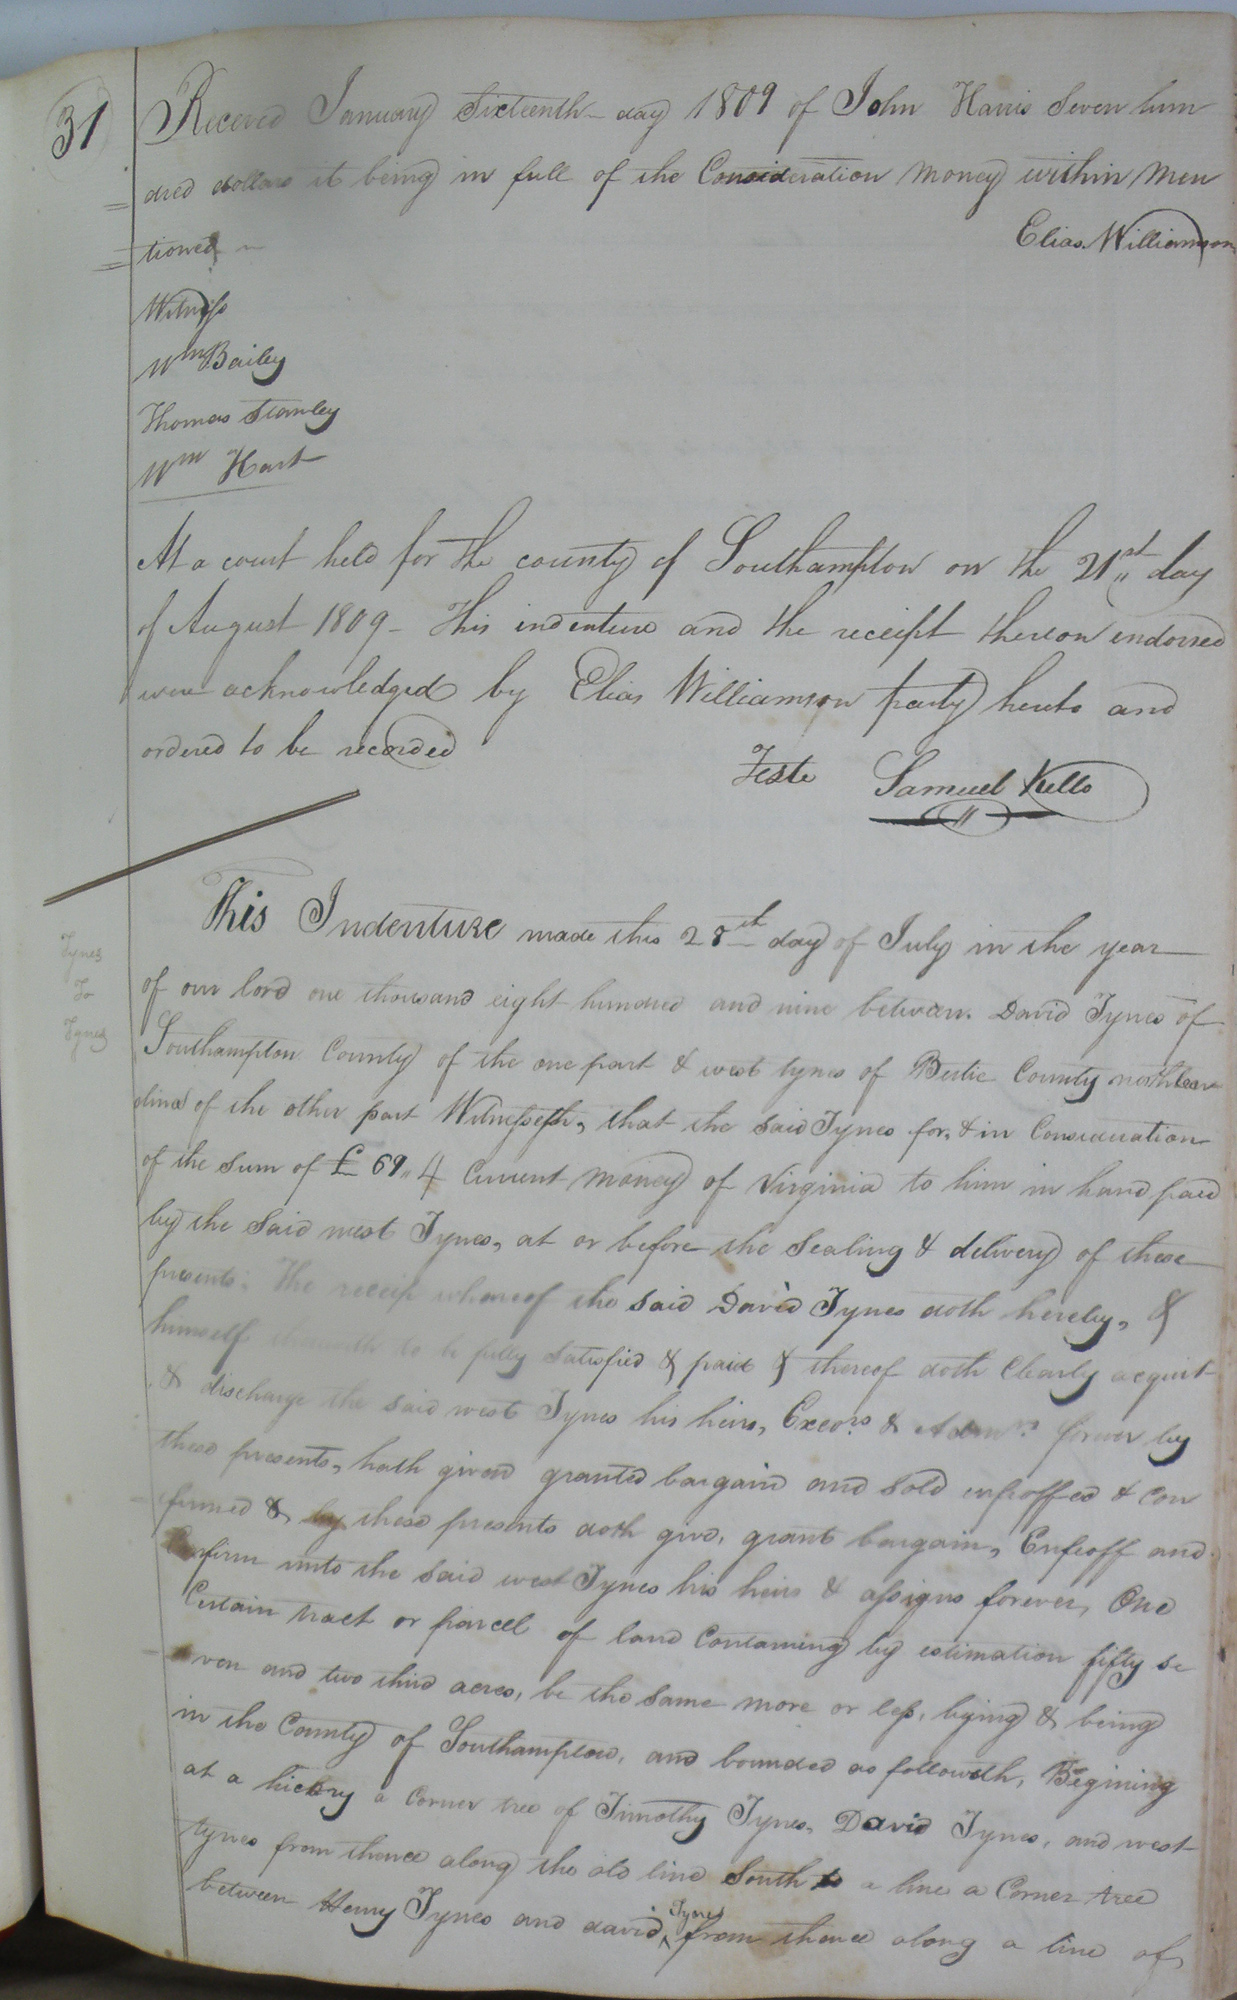 31
Received January Sixteenth day 1809 of John Harris Seven hun
dred dollars it being in full of the Consideration Money within Men
tioned
Elias Williamson
Witness
Wm Bailey
Thomas Stanley
Wm Hart
At a court held for the county of Southampton on the 21st day
of August 1809 - This indenture and the receipt thereon endorsed
were acknowledged by Elias Williamson party hereto and
ordered to be recorded
Teste Samuel Kello
This Indenture made this 28th day of July in the year
Tynes
To
Tynes
of our lord one thousand eight hundred and nine between David Tynes of
Southampton County of the one part & west tynes of Bertie County north Caro
lina of the other part Witnesseth, that the said Tynes for, & in Consideration
of the sum of £ 69,, 4 Current Money of Virginia to him in hand paid
by the Said west Tynes, at or before the Sealing & delivery of these
presents, The receip whareof the said David Tynes doth hereby, &
himself to be fully satisfied & paid & thereof doth Clearly acquit
& discharge the said west Tynes his heirs, Exeors & Admrs forever by
these presents, hath given granted bargain and sold enfeoffed & con
firmed & by these presents doth give, grant bargain, Enfeoff and
Confirm unto the said west Tynes his heirs & assigns forever, One
Certain tract or parcel of land Containing by estimation fifty se
ven and two third acres, be the same more or less, lying & being
in the County of Southampton, and bounded as followeth, Begining
at a hickry a Corner tree of Timothy Tynes, David Tynes, and west
tynes from thence along the old line South to a line a Corner tree
between Henry Tynes and david ^Tynes from thence along a line of